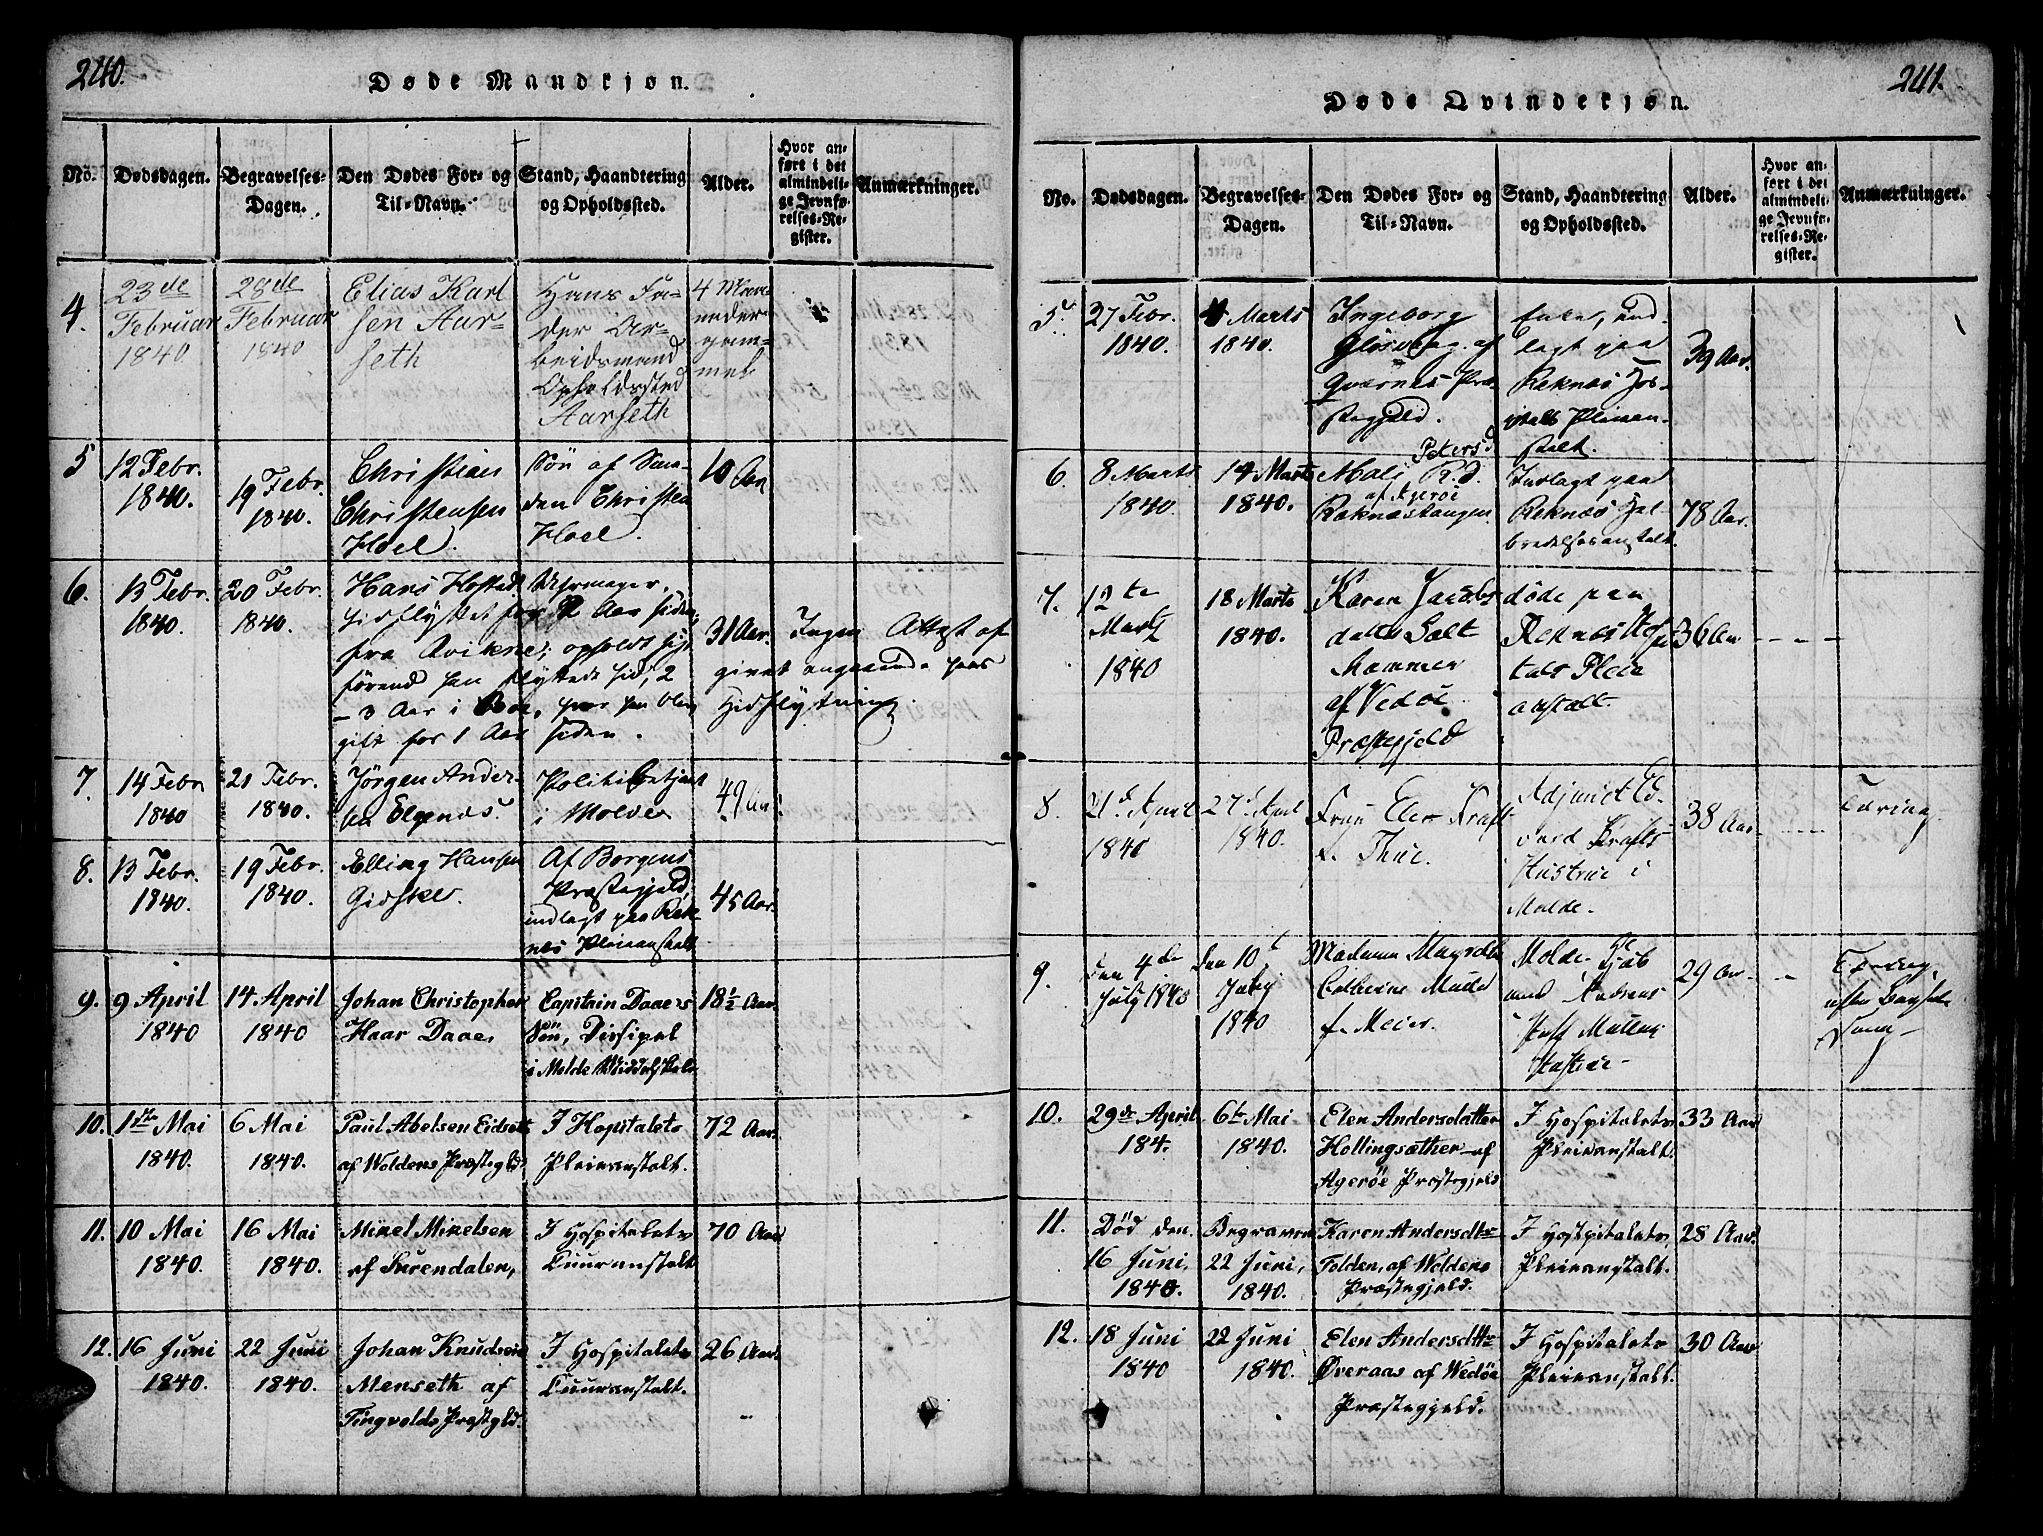 240.
Døde Mandkjøn.
No.
Dødsdagen.
Begravelses-
Dagen.
Den Dødes For- og
Til-Navn.
Stand, Haandtering
og Opholdssted.
Alder.
Hvor an-
ført i det
almindeli-
ge Jevnfø-
relses-Re-
gister.
Anmærkninger.
4.
23de
Februar
1840
28de
Februar
1840
Elias Karl
sen Aar-
seth
Hans Fa-
der Ar-
beidsmand
Opholdssted
Aarseth
4 Maa-
neder
gam-
mel
5
12 Febr.
1840.
19 Febr.
1840.
Christian
Christensen
Hoel.
Søn af
Christen
Hoel.
10 Aar
6.
13 Febr.
1840.
20 Febr.
1840.
Hans
Uhrmager,
hidflyttet for 2 Aar siden,
fra opholdt sig
førend han flyttede hid, 2
- 3 Aar i
gift for 1 Aar siden.
31 Aar.
Ingen Attest af
givet angaaende hans
Hidflytning.
7.
14 Febr
1840
21 Febr.
1840.
Jørgen Ander-
sen Elgenes.
Politibetjent
i Molde
49
8.
13 Febr.
1840.
19 Febr.
1840.
Elling Hansen
Gidske.
Af Borgens
Præstegjeld,
indlagt paa Rek-
nes Pleieanstalt
45 Aar.
9.
9 April
1840
14 April
1840
Johan Christopher
Haar Daae.
Capitain Daaes
Søn, Discipel
i Molde Middelskole.
18½ Aar.
10.
1ste Mai
1840.
6 Mai
1840.
Paul Abelsen
af Woldens Præstegld.
I Hospitalets
Pleieanstalt.
72 Aar.
11.
10 Mai
1840.
16 Mai
1840.
Mikel Mikelsen
af Surendalen,
I Hospitalets
Cuuranstalt
70 Aar
12.
16 Juni
1840.
22 Juni
1840.
Johan Knudsen
Menseth af
Tingvolds Præstgld.
I Hospitalets
Cuuranstalt.
26 Aar.
241.
Døde Qvindekjøn.
No.
Dødsdagen.
Begravelses-
Dagen.
Den Dødes For- og
Til-Navn.
Stand, Haandtering
og Opholdssted.
Alder.
Hvor an-
ført i det
almindeli-
ge Jevnfø-
relses-Re-
gister.
Anmærkninger.
5.
27 Febr.
1840.
Marts
1840.
Ingeborg
af
Qvernes Præ-
stegjeld.
Enke, ind-
lagt paa
Reknæs Hos-
pitals Pleiean-
stalt.
39 Aar.
6.
8 Marts
1840.
14 Marts
1840.
Peters d
Mali
af Agerøe
Reknæshaugen.
Indlagt paa
Reknæs Hel-
bredelsesanstalt.
78 Aar.
7.
12te
Marts
1840
18 Marts
1840.
Karen Jacobs
datter Salt
hammer
af Vedøe
Præstegjeld
døde paa
Reknæs Hospi
tals Pleie
anstalt.
36 Aar
8.
21d April
1840
27d April
1840.
Frue Elen Kraft
f. Thue.
Adjunct Ed-
vard Krafts
Hustrue i
Molde.
38 Aar
Tæring
9.
den 4de
July 1840
den 10t
July
1840
Madame Magdale
Catherine
f. Meier.
Molde Kjøb
mand
Hustrue
29 Aar
Tæring
efter Barsel
10.
29de April
184.
6te Mai
1840.
Elen Andersdatter
Hollingsæther af
Agerøe Præstegjeld
I Hospitalets
Pleieanstalt.
33 Aar
11.
Død den
16 Juni,
1840.
Begraven
22 Juni,
1840.
Karen Andersdtr
Folden, af Woldens
Præstegjeld.
I Hospitalets
Pleieanstalt.
28 Aar.
12.
18 Juni
1840
22 Juni
1840.
Elen Andersdtr
Øveraas af Wedøe
Præstegjeld.
I Hospitalets
Pleieanstalt.
30 Aar